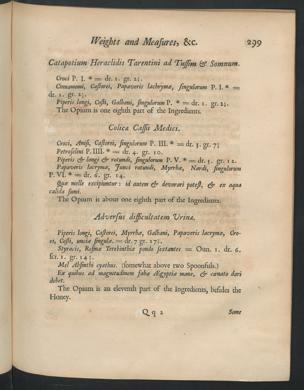 Weights and Measures, &c. 299
Catapotium Heraclidis Tarentini ad Tussim & Somnum.
Croci P. I. * = dr. 1. gr. 2;.
Cinnamomi, Castorei, Papaveris lachrymæ, singulorum P. I. * =
dr. 1. gr. 2;.
Piperis longi, Costi, Galbani, singulorum P. * = dr. 1. gr. 2;.
The Opium is one eighth part of the Ingredients.
Colica Cassii Medici.
Croci, Anisi, Castorei, singulorum P. III. * = dr. 3. gr. 7;
Petroselini P. IIII. * = dr. 4. gr. 10.
Piperis & longi & rotundi, singulorum P. V. * = dr. 5. gr. 12.
Papaveris lacrymæ, Junci rotundi, Myrrhæ, Nardi, singulorum
P. VI. * = dr. 6. gr. 14.
Quæ melle excipiuntur: id autem & devorari potest, & ex aqua
calida sumi.
The Opium is about one eighth part of the Ingredients.
Adversus difficultatem Urinæ.
Piperis longi, Castorei, Myrrhæ, Galbani, Papaveris lacrymæ, Cro-
ci, Costi, unciæ singulæ = dr. 7 gr. 17;.
Styracis, Resinæ Terebinthinæ pondo sextantes = Oun. 1. dr. 6.
scr. 1. gr. 14;.
Mel Absinthi cyathus. (somewhat above two Spoonfuls.)
Ex quibus ad magnitudinem fabæ Ægyptiæ mane, & cœnato dari
debet.
The Opium is an eleventh part of the Ingredients, besides the
Honey.
Q q 2 Some